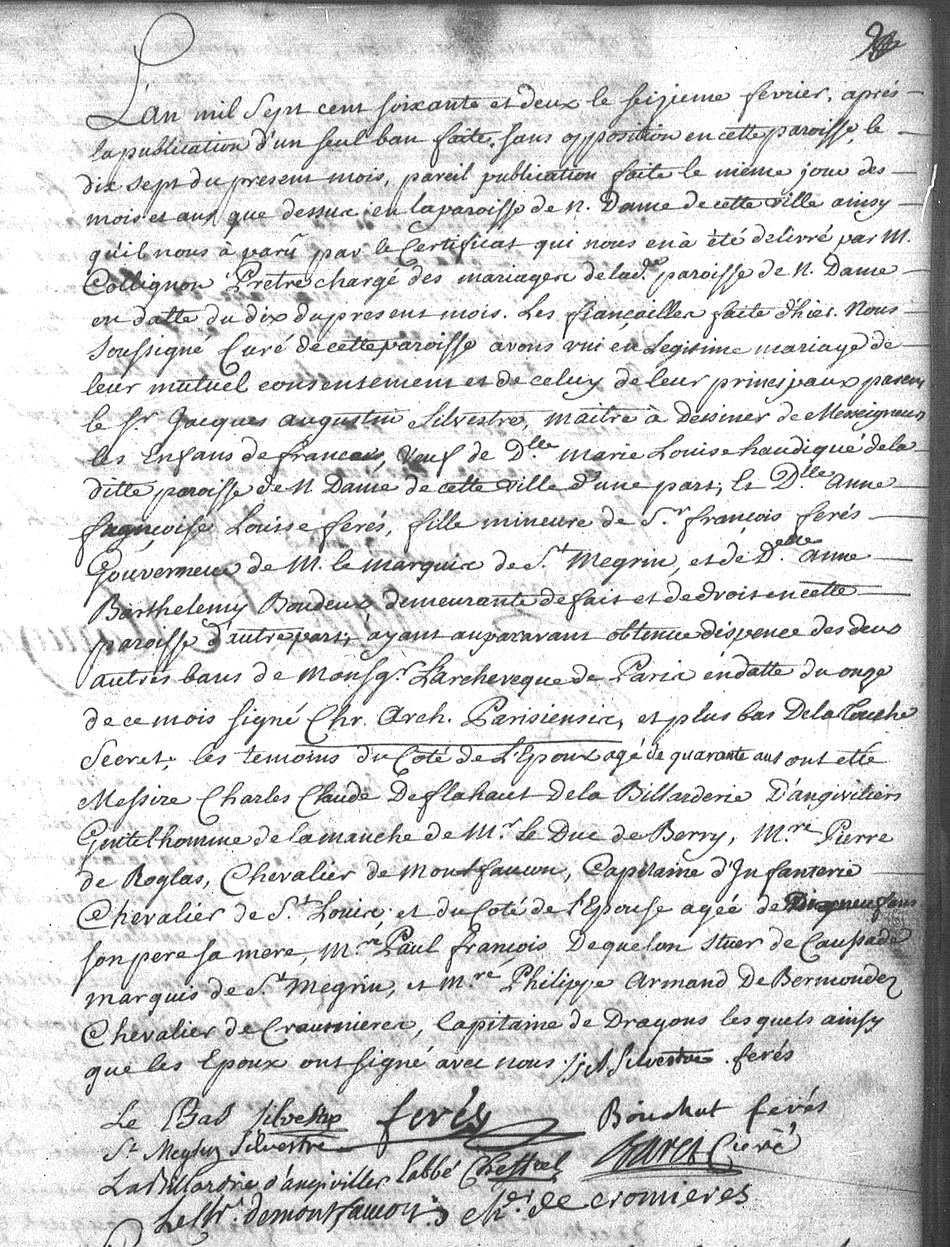 L'an mil sept cent soixante et deux le seizieme fevrier, après
la publication d'un seul ban faite sans opposition en cette paroisse, le
dix sept du present mois, pareil publication faite le même jour des
mois et ans que dessus en la paroisse de N. Dame de cette ville ainsy
qu'il nous à parû par le Certificat qui nous en à été delivré par M.
Collignon Prêtre chargé des mariages de lad. paroisse de N. Dame
en datte du dix du present mois. Les fiançailles faite d'hier. Nous
soussigné Curé de cette paroisse avons uni en Legitime mariage de
leur mutuel consentement et de celuy de leur principaux parens
le Sr. Jacques augustin Silvestre, maitre à dessiner de Messeigneurs
les Enfans de france, veuf de Dlle marie Louise haudiqué de la
ditte paroisse de N. Dame de cette ville d'une part; Et Dlle anne
françoise Louise ferés, fille mineure de S.r françois ferés
Gouverneur de M. le marquis de St Megrin, et de D.elle anne
Barthelemy Boudeux demeurante de fait et de droit en cette
paroisse d'autre part; ayant auparavant obtenue dispence des deux
autres bans de Monsgr. L'archeveque de Paris en datte du onze
de ce mois signé Chr. Arch. Parisiensis, et plus bas De la Touche
Secret. les temoins du Coté de L'Epoux agé de quarante ans ont eté
Messire Charles Claude De flahaut De la Billarderie D'angiviliers
Gentilhomme de la manche de Mr. Le Duc de Berry, Mre Pierre
de Roglas, Chevalier de Montfaucon, Capitaine d'Infanterie
Chevalier de St. Louis; et du Coté de l'Epouse agée de Dix neuf ans
son pere sa mere, Mre. Paul françois Dequelon Stuer de Caussade
marquis de St. Megrin, et Mre Philippe Armand De Bermondez
Chevalier de Craumieres, Capitaine de Dragons lesquels ainsy
que les Epoux ont signé avec nous. J. A Silvestre . ferés
Le Bas Silvestre ferés Bouchut ferés
St Megrin Silvestre Curé
LaBillardrie d'angiviller Labbé
Le Chr. demontfaucon Chr. de cromieres